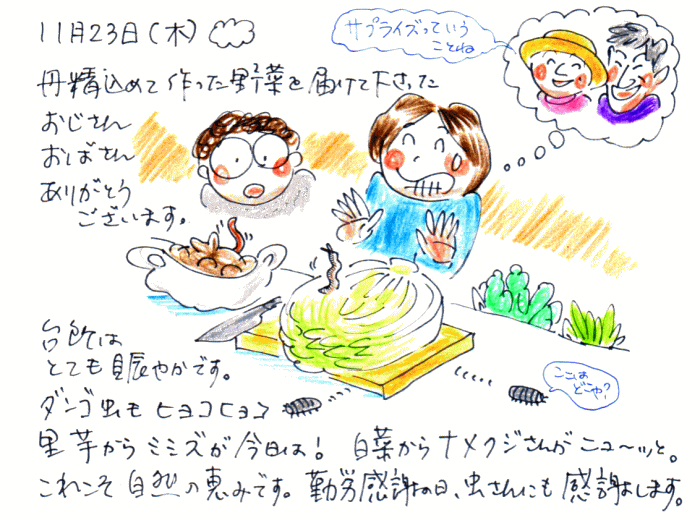 11月23日(木)
サプライズっていう
ことね
丹精込めて作った野菜を届けて下さった
おじさん
おばさん
ありがとう
ございます。
台所は
とても賑やかです。
ダンゴ虫もヒョコヒョコ
ここは
どこや?
里芋からミミズが今日は! 白菜からナメクジさんがニュ〜ッと。
これこそ自然の恵みです。勤労感謝の日、虫さんにも感謝します。